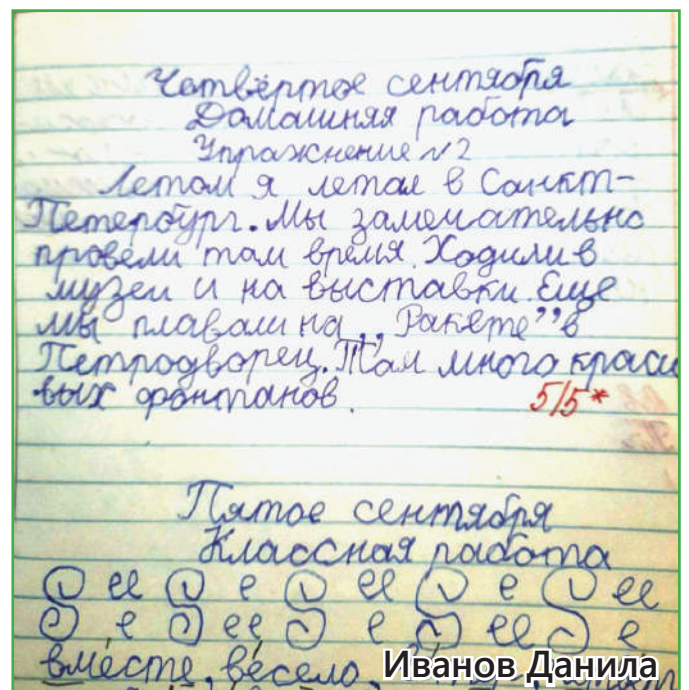 Четвёртое сентября
Домашняя работа
Упражнение №2
Летом я летал в Санкт-
Петербург. Мы замечательно
провели там время. Ходили в
музеи и на выставки. Еще
мы плавали на ,,Ракете” в
Петродворец. Там много краси
вых фонтанов.
5/5*
Пятое сентября
Классная работа
ее е ее е ее
е ее е ее е
вместе, весело,
Иванов Данила